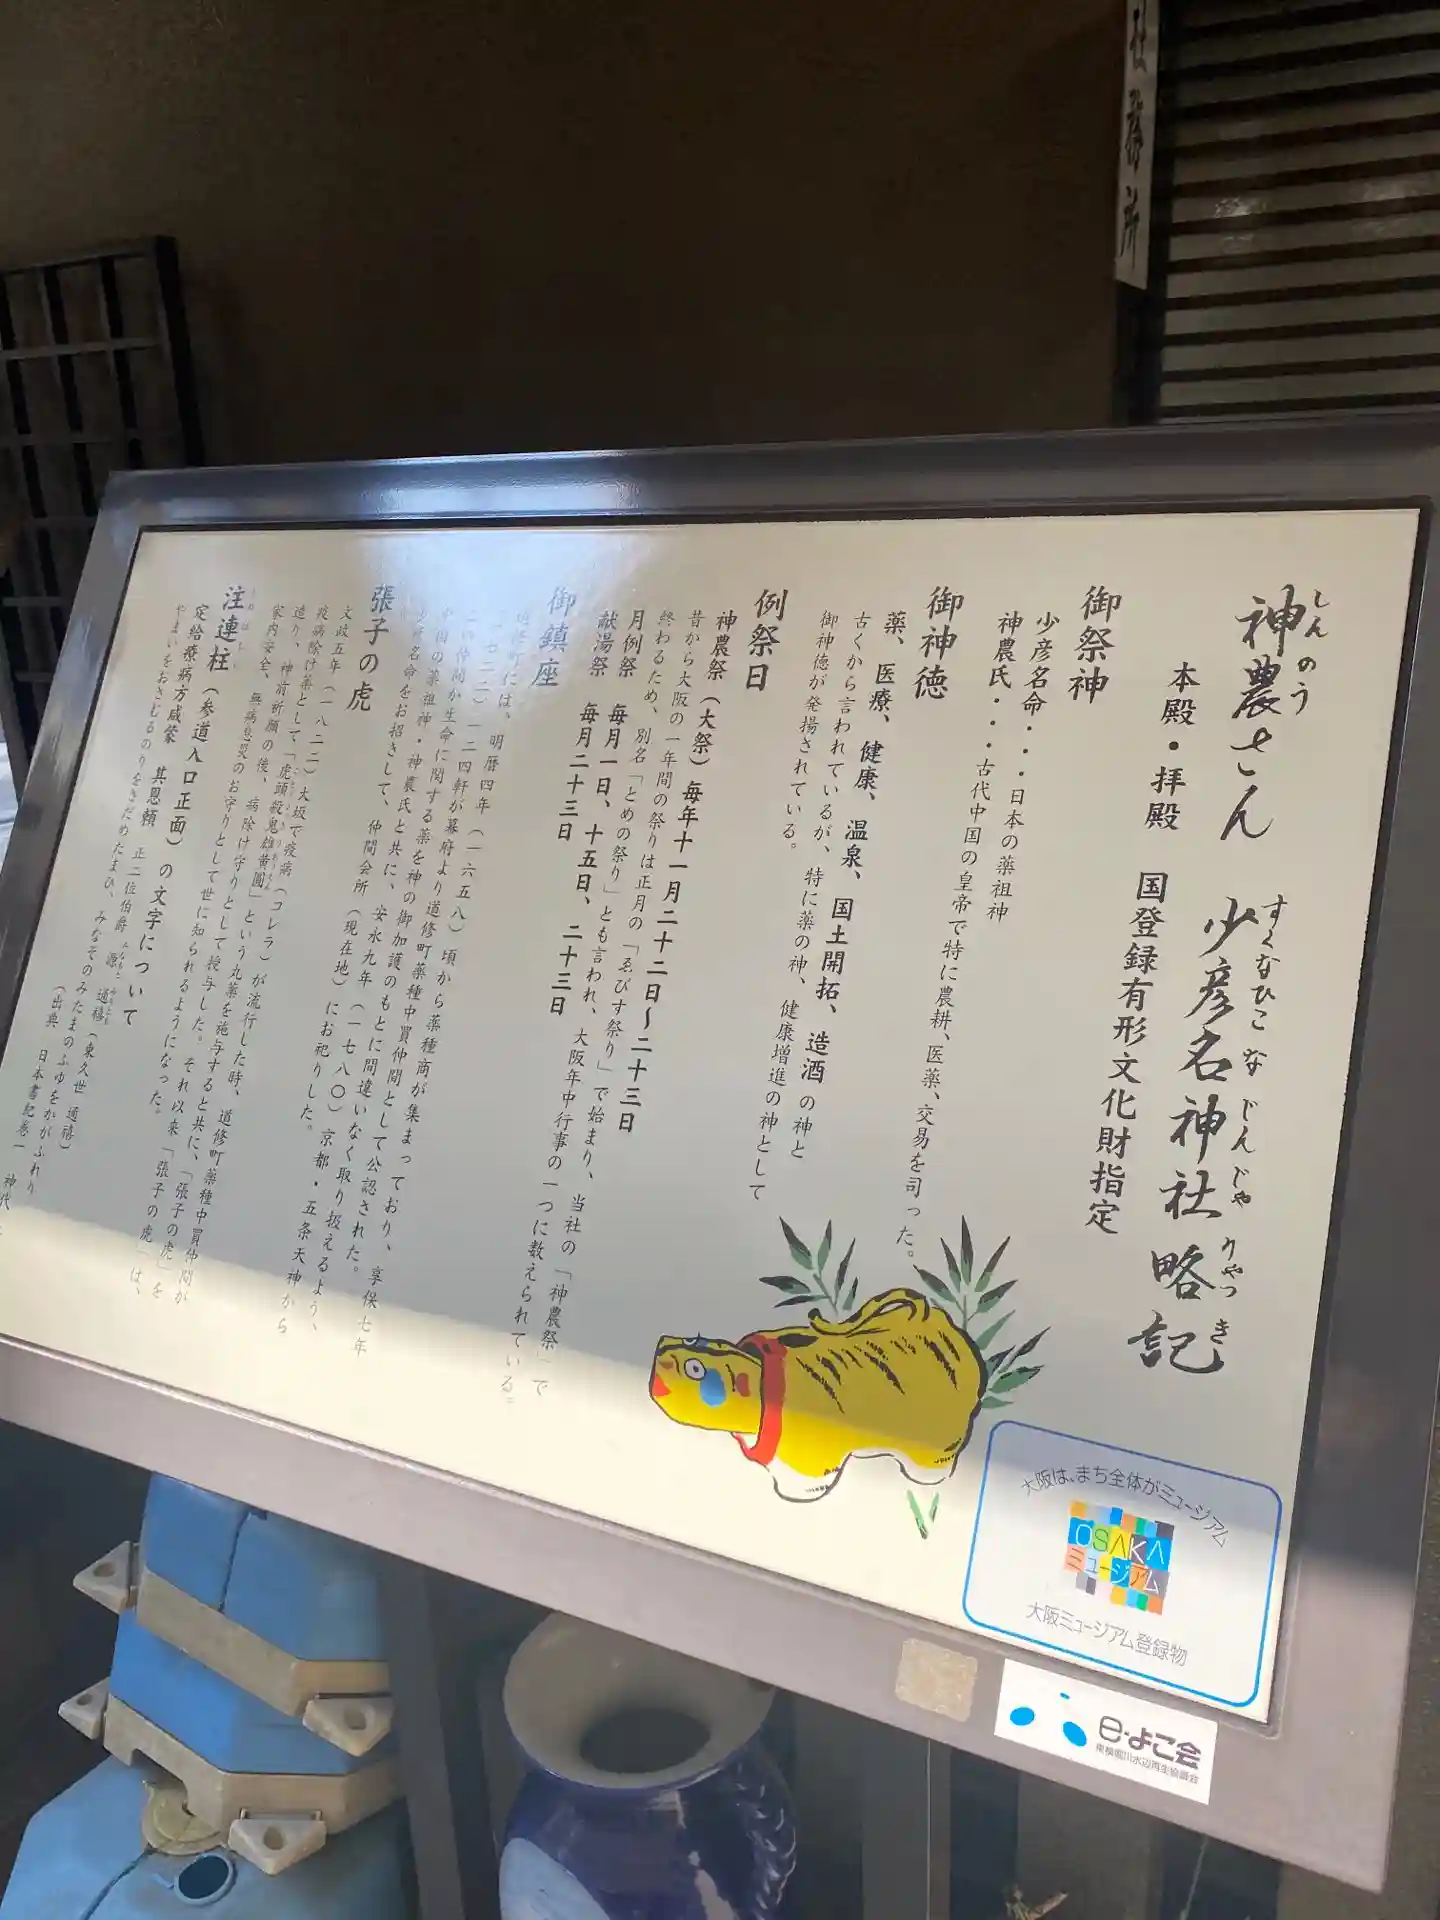 社務所
神農さん 少彦名神社 略記
しんのう すくなひこなじんじゃ りゃっき
本殿・拝殿 国登録有形文化財指定
御祭神
少彦名命・・・日本の薬祖神
神農氏・・・古代中国の皇帝で特に農耕、医薬、交易を司った。
御神徳
薬、医療、健康、温泉、国土開拓、造酒の神と
古くから言われているが、特に薬の神、健康増進の神として
御神徳が発揚されている。
例祭日
神農祭(大祭)毎年十一月二十二日〜二十三日
昔から大阪の一年間の祭りは正月の「ゑびす祭り」で始まり、当社の「神農祭」で
終わるため、別名「とめの祭り」とも言われ、大阪年中行事の一つに数えられている。
月例祭 毎月一日、十五日、二十三日
献湯祭 毎月二十三日
御鎮座
道修町には、明暦四年(一六五八)頃から薬種商が集まっており、享保七年
(一七二二)一二四軒が幕府より道修町薬種中買仲間として公認された。
仲間が生命に関する薬を神の御加護のもとに間違いなく取り扱えるよう、
中国の薬祖神・神農氏と共に、安永九年(一七八〇)京都・五条天神から
少彦名命をお招きして、仲間会所(現在地)にお祀りした。
張子の虎
文政五年(一八二二)大坂で疫病(コレラ)が流行した時、道修町薬種中買仲間が
疫病除け薬として「虎頭殺鬼雄黄圓」という丸薬を施与すると共に、「張子の虎」を
造り、神前祈願の後、病除け守りとして授与した。それ以来「張子の虎」は、
家内安全、無病息災のお守りとして世に知られるようになった。
注連柱(参道入口正面)の文字について
定給療病方咸蒙 其恩頼 正二位伯爵 源 通禧(東久世 通禧)
やまいをおさむるのりをさだめたまひ、みなそのみたまのふゆをかがふれり
(出典 日本書紀巻一 神代
大阪は、まち全体がミュージアム
OSAKA
ミュージアム
大阪ミュージアム登録物
e-よこ会
東横堀川水辺再生協議会